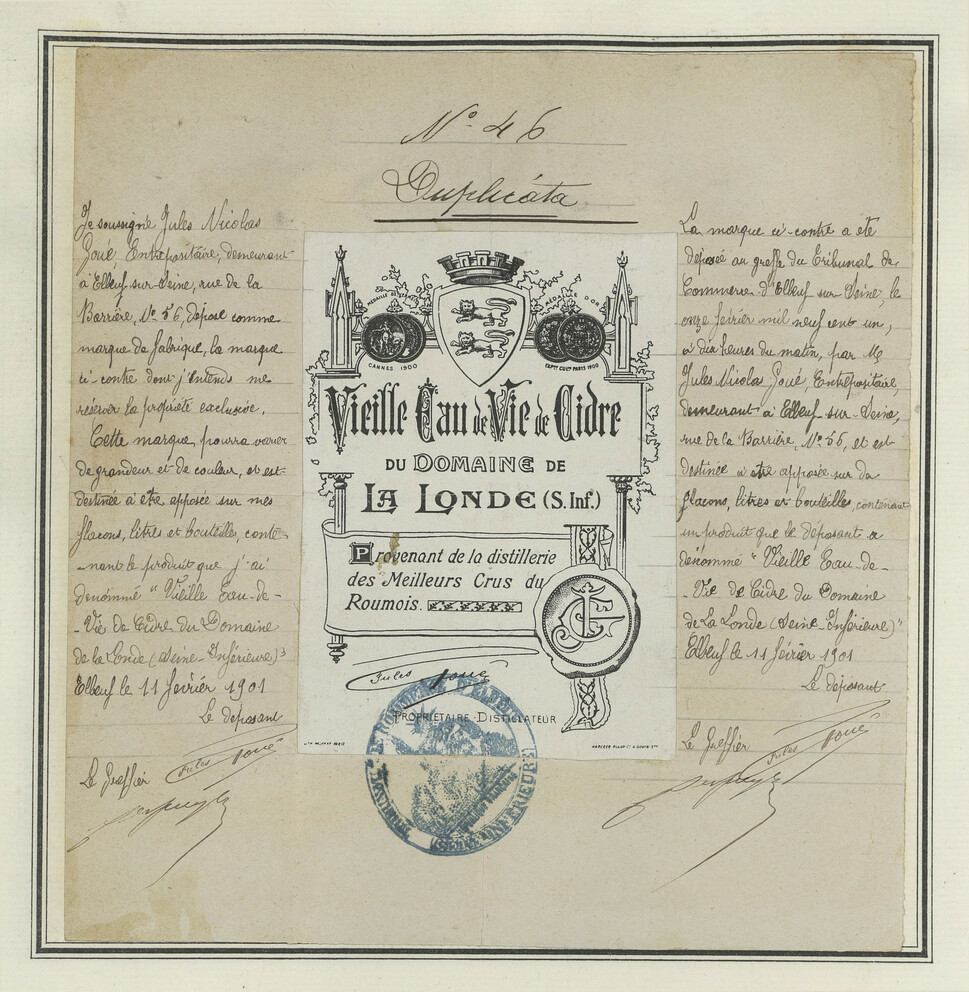 N° 46
Duplicata
Je soussigné Jules Nicolas
Joué Entrepositaire, demeurant
à Elbeuf-sur-Seine, rue de la
Barrière, N° 56, dépose comme
marque de fabrique, la marque
ci-contre dont j'entends me
réserver la propriété exclusive.
Cette marque pourra varier
de grandeur et de couleur, et est
destinée à être apposée sur mes
flacons, litres et bouteilles, conte
-nant le produit que j'ai
dénommé "Vieille Eau-de-
-Vie de Cidre du Domaine
de la Londe (Seine-Inférieure)"
Elbeuf le 11 février 1901
Le déposant
Jules Joué
Le Greffier
MÉDAILLE D'OR
CANNES 1900
EXPT CULRE PARIS 1900
Vieille Eau de Vie de Cidre
DU DOMAINE DE
LA LONDE (S. Inf.)
Provenant de la distillerie
des Meilleurs Crus du
Roumois.
Jules Joué
PROPRIÉTAIRE-DISTILLATEUR
La marque ci-contre a été
déposée au greffe du Tribunal de
Commerce d'Elbeuf sur-Seine, le
onze février mil neuf cent un,
à dix heures du matin, par M
Jules Nicolas Joué, Entrepositaire,
demeurant à Elbeuf-sur-Seine,
rue de la Barrière, N° 56, et est
destinée a être apposée sur des
flacons, litres et bouteilles, contenant
un produit que le déposant a
dénommé "Vieille Eau-de-
-Vie de Cidre du Domaine
de La Londe (Seine-Inférieure)"
Elbeuf le 11 février 1901
Le déposant
Jules Joué
Le Greffier
(SEINE INFÉRIEURE)